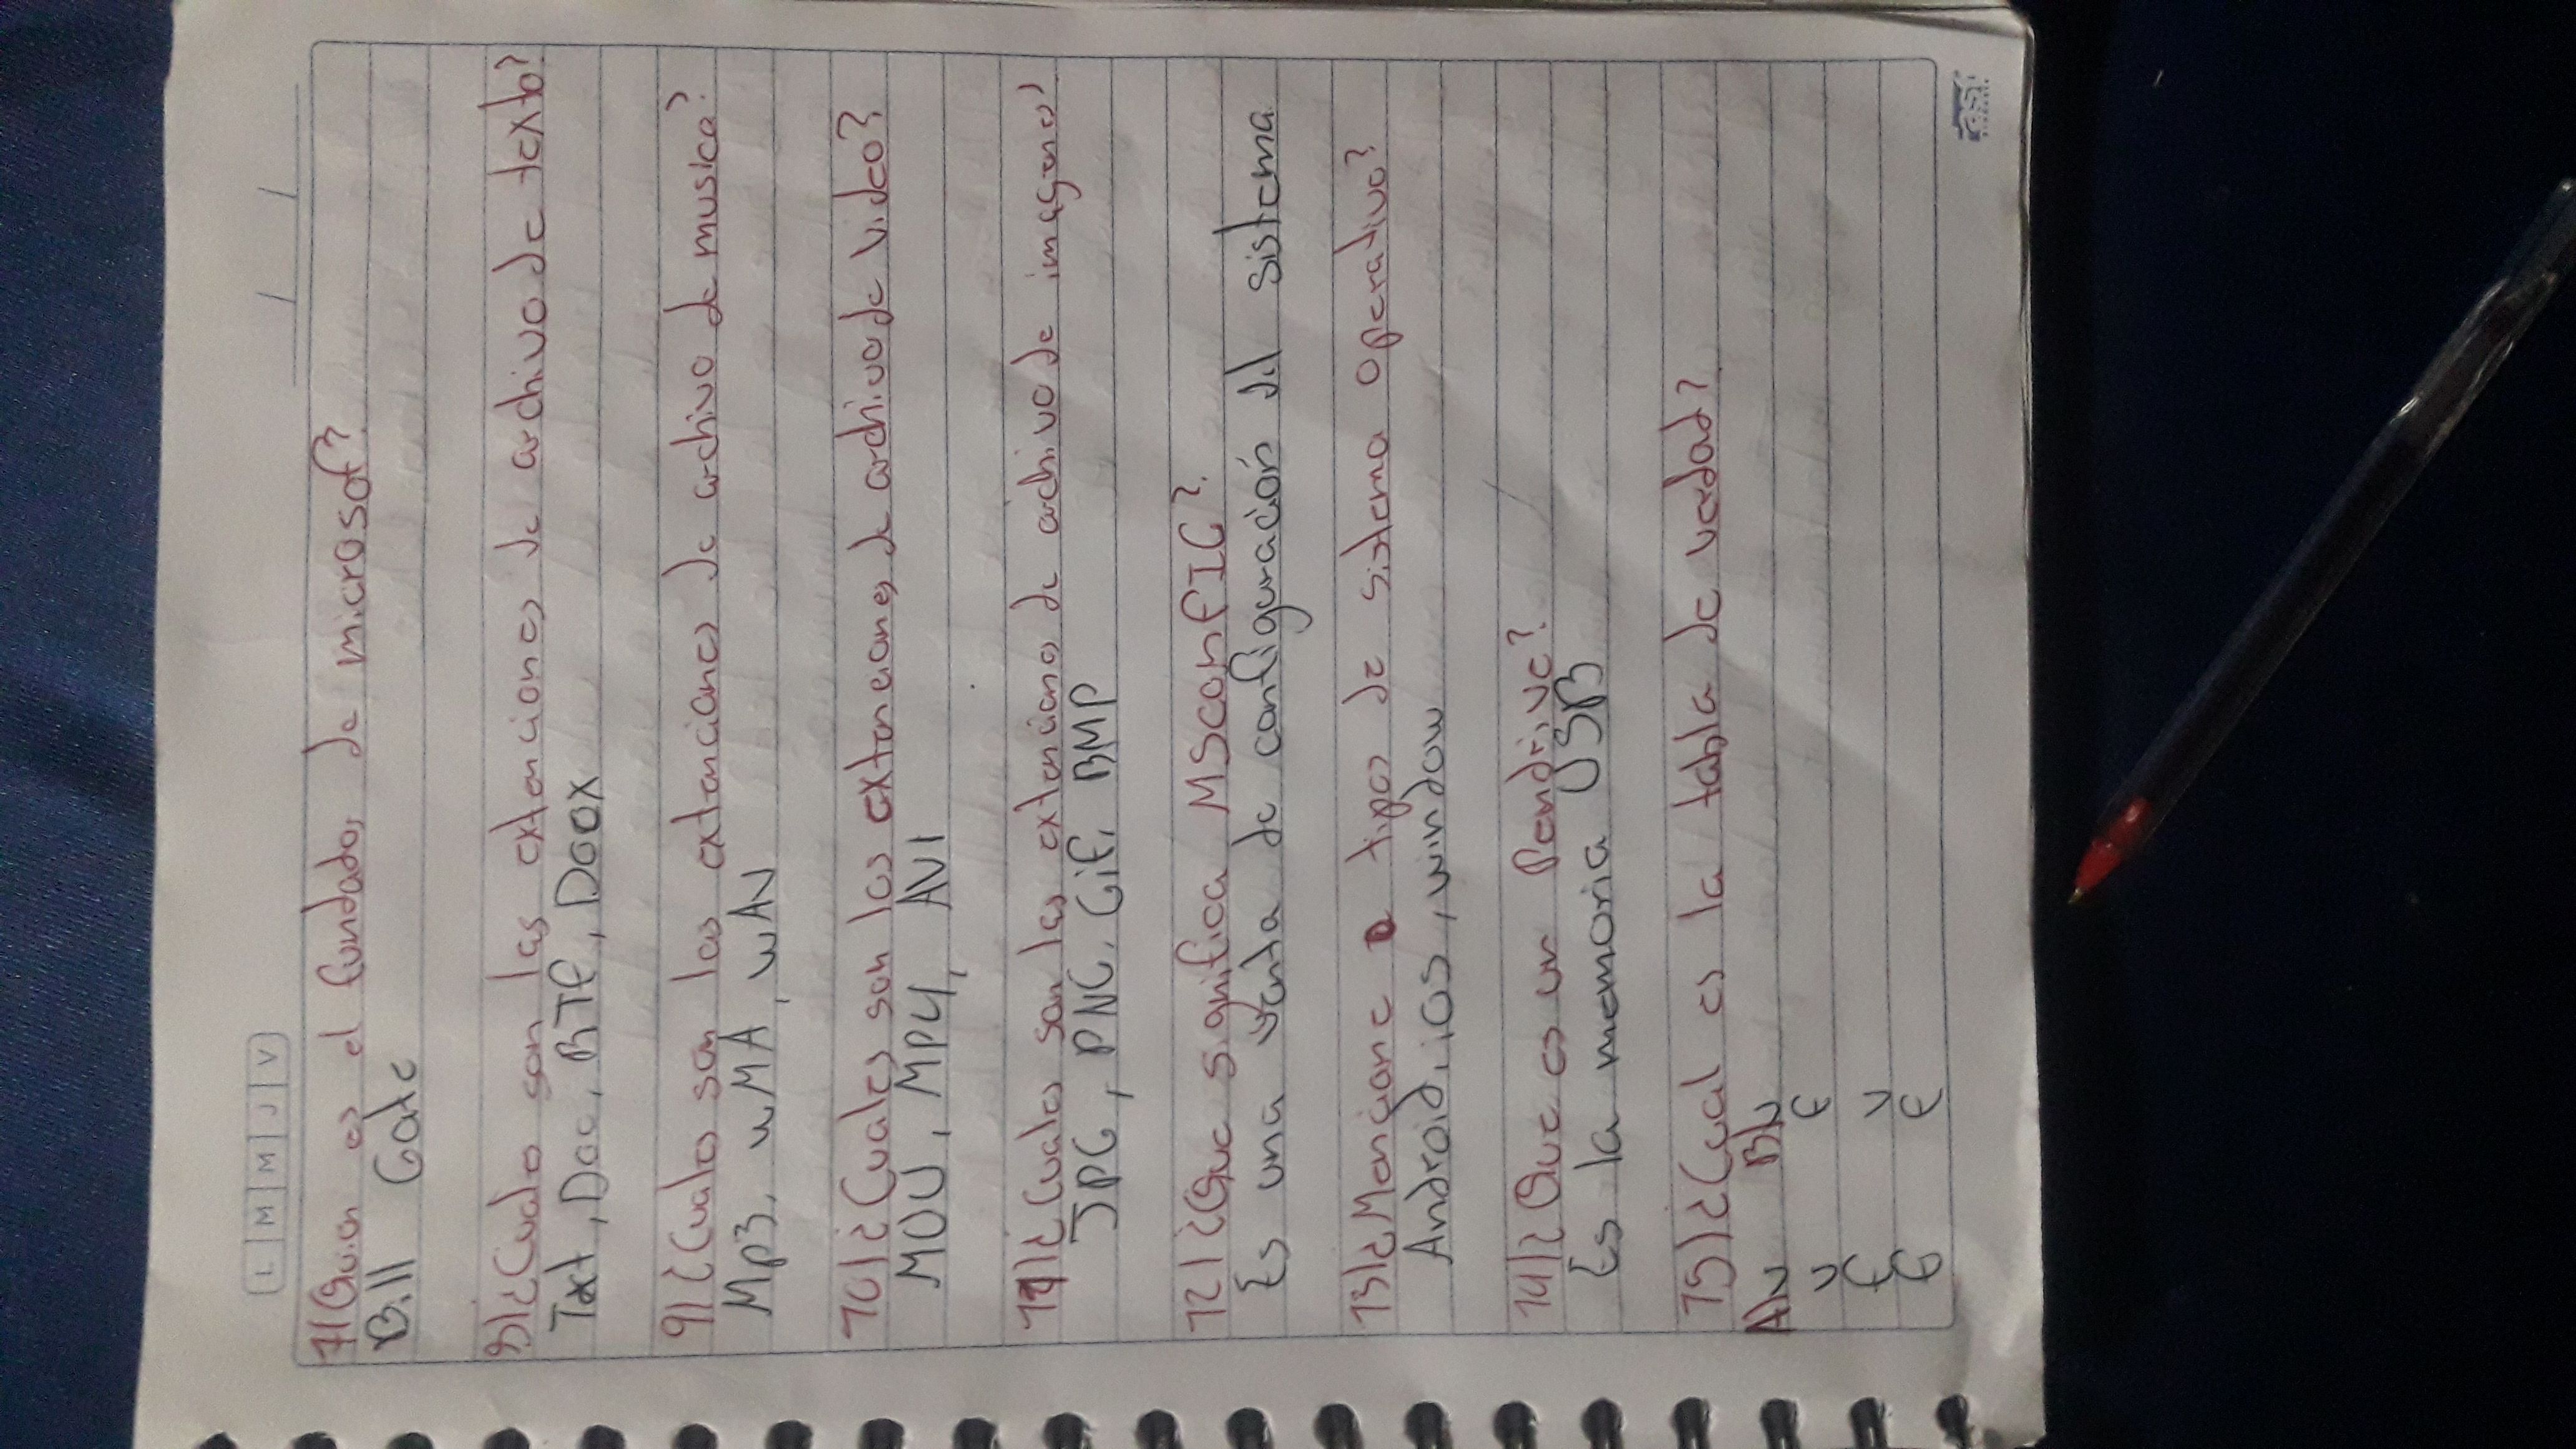 L M M J V
7) Quien es el fundador de microsof?
Bill Gate
8) ¿Cuales son las extenciones de archivo de texto?
Txt, Doc, RTF, DOOX
9) ¿Cuales son las extenciones de archivo de musica?
Mp3, wMA, wAV
10) ¿Cuales son las extenciones de archivo de video?
MOV, MP4, AVI
11) ¿Cuales son las extenciones de archivo de imagenes?
JPG, PNG, Gif, BMP
12) ¿Que significa MSconfIG?
Es una venta de configuración del sistema
13) ¿Mencione tipos de sistema operativo?
Android, iOS, window
14) ¿Que es un Pendrive?
Es la memoria USB
15) ¿Cual es la tabla de verdad?
AV BV
V F
F V
F